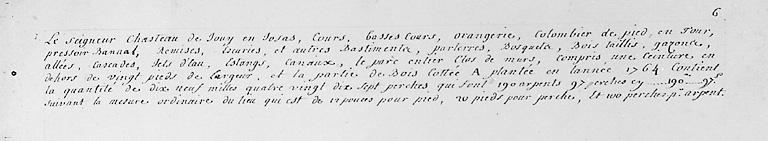 6
Le Seigneur Chasteau de Jouy en Josas, Cours, basses Cours, orangerie, Colombier de pied, en Tour,
pressoir Banaal, Remises, Ecuries, et autres Bastiments, parterres, Bosquets, Bois taillis, gazonce,
allées, Cascades, Jets d'eau, Estangs, Canaux, le parc entier Clos de murs, compris une Ceinture en
dehors de vingt pieds de Largeur, et la partie de Bois Cottée A plantée en lannée 1764. Contient
la quantité de dix neuf milles quatre vingt dix sept perches qui sont 190 arpents 97 perches cy 190 97
suivant la mesure ordinaire du lieu qui est de 12 pouces pour pied, pieds pour perche, Et 100 perches pr. arpent.